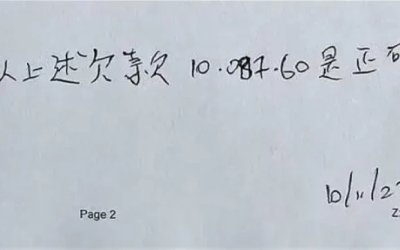 以上述欠款 10.087.60是正确
10/11/2
Page 2